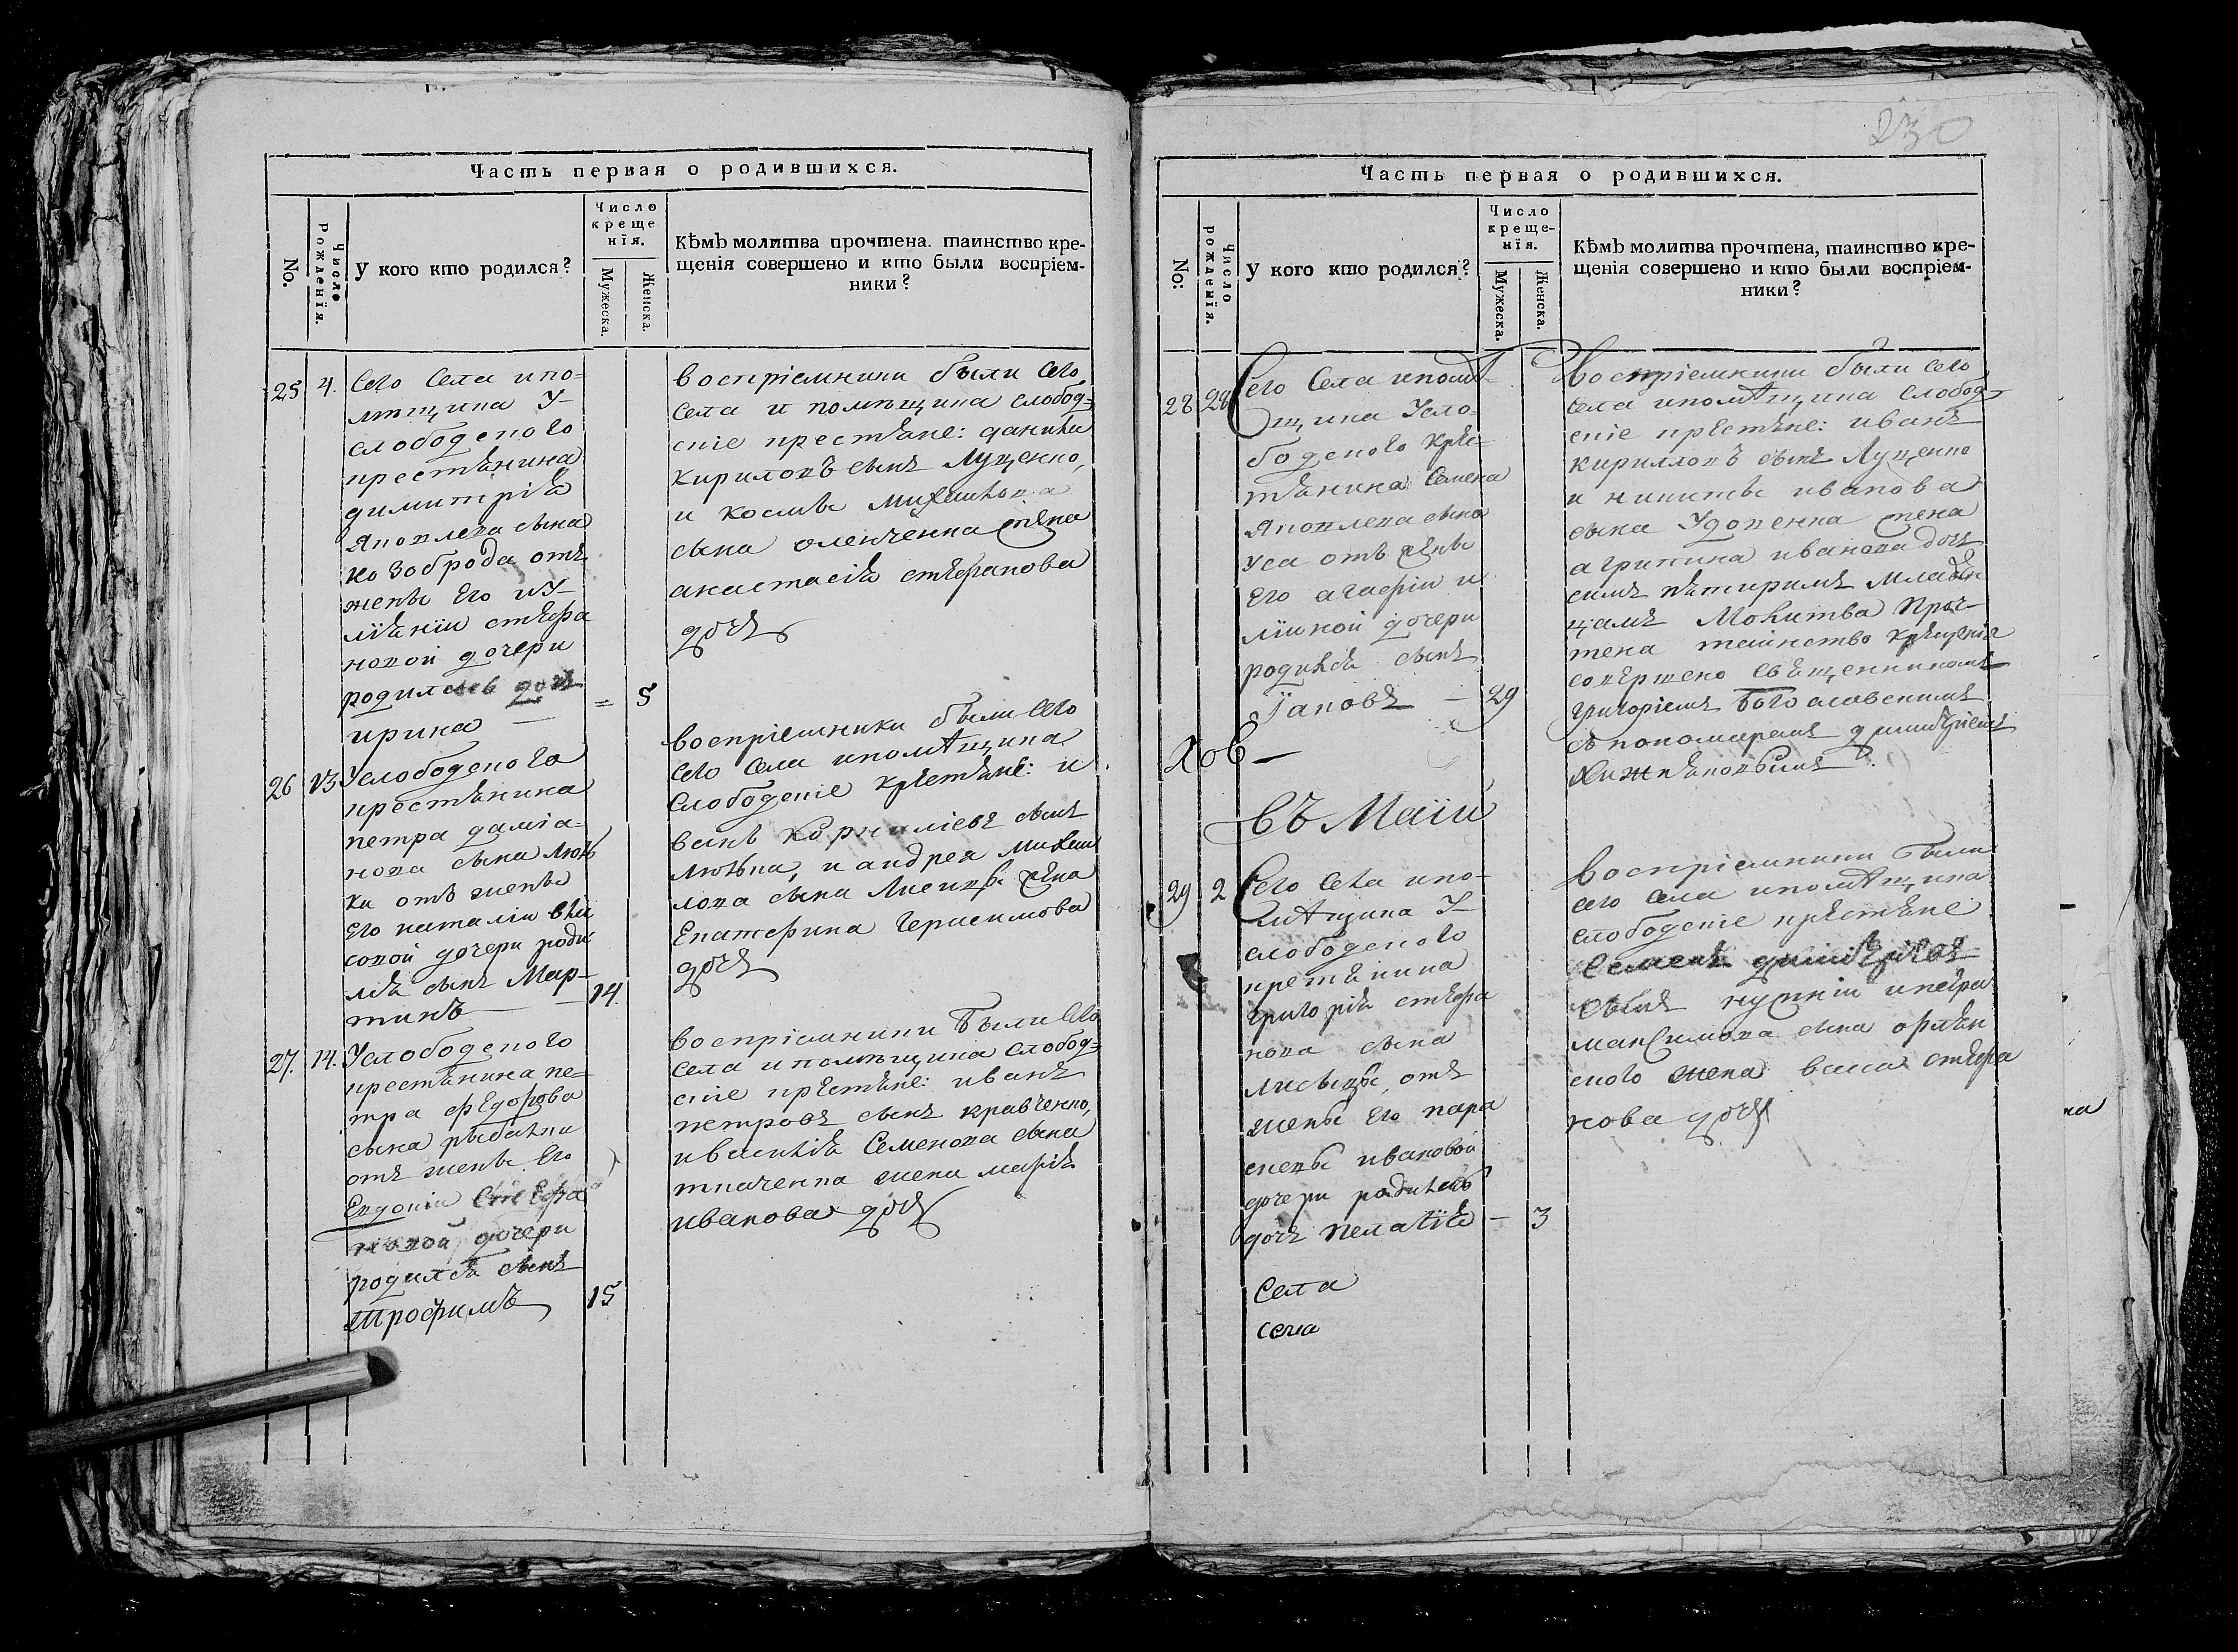 Часть первая о родившихся.
No.
Число рожденїя.
У кого кто родился?
Число креще нїя.
Мужеска.
Женска.
Кѣмъ молитва прочтена. таинство кре-
щенїя совершено и кто были воспрїем-
ники?
25
4.
Сего Села и по=
мѣщика У-
слободеного
крестьянина
димитрія
Яковлева сына
Козоброда отъ
жены Его
стефа
новой дочери
родилась дочь
ирина
= 5
воспріемники были Сего
Села и помѣщика слобод=
скіе крестьяне: данила
Кириловъ сынъ Луценко,
и космы Михайлова
сына жена
анастасія стефанова
дочь
26
13
Услободеного
крестьянина
петра даміа-
нова сына
ки отъ жены
Его наталіи
совой дочери роди
лся сынъ Мар-
тинъ
14.
воспріемники были Сего
Сего Села и помѣщика
Слободскіе крестьяне: и
ванъ Корниліевъ сынъ
и андрея Михаи
лова сына жена
Екатерина Герасимова
дочь
27.
14.
Услободеного
крестьянина пе=
тра федорова
сына рыбалки
отъ жены Его
Евдокіи Стефа
новой дочери
родился сынъ
Трофимъ
15
воспріемники были Сего
Села и помѣщика слобод=
скіе крестьяне: иванъ
петровъ сынъ кравченко,
и василія Семенова сына
ткаченка жена марія
иванова дочь
230
Часть первая о родившихся.
No:
Число рожденїя.
У кого кто родился?
Число креще- нїя.
Мужеска.
Женска.
Кѣмъ молитва прочтена, таинство кре-
щенїя совершено и кто были воспрїем-
ники?
28
28
Сего Села и помѣ-
щика Усло-
боденого кре-
стьянина Семена
Яковлева сына
Уса отъ жены
Его агафіи и
линой дочери
родился сынъ
Іаковъ
— 29
Воспріемники были Сего
Села и помѣщика слобод-
скіе крестьяне: иванъ
кирилловъ сынъ Луценко
и никиты иванова
сына жена
агрипина иванова дочь
симъ четыремъ младен
цамъ Молитва Проч-
тена таинство крещенія
совершено Священникомъ
григоріемъ Богославскимъ
съ пономаремъ димитріемъ
въ Маіи
29
2
Сего Села и по-
мѣщика У-
слободеного
крестьянина
григорія стефа
нова сына
отъ
жены его пара
скевы ивановой
дочери родилась
дочь пелагія
— 3
Воспріемники были
сего села и помѣщика
слободскіе крестьяне
Семенъ димитріевъ
сынъ и петра
максимова сына орлян
ского жена васса стефа
нова дочь
Села
села
ка